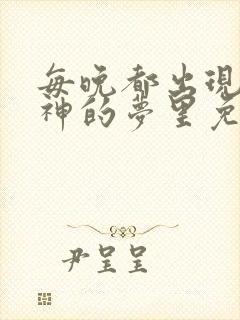 每晚都出現
神的夢里免
尹呈呈